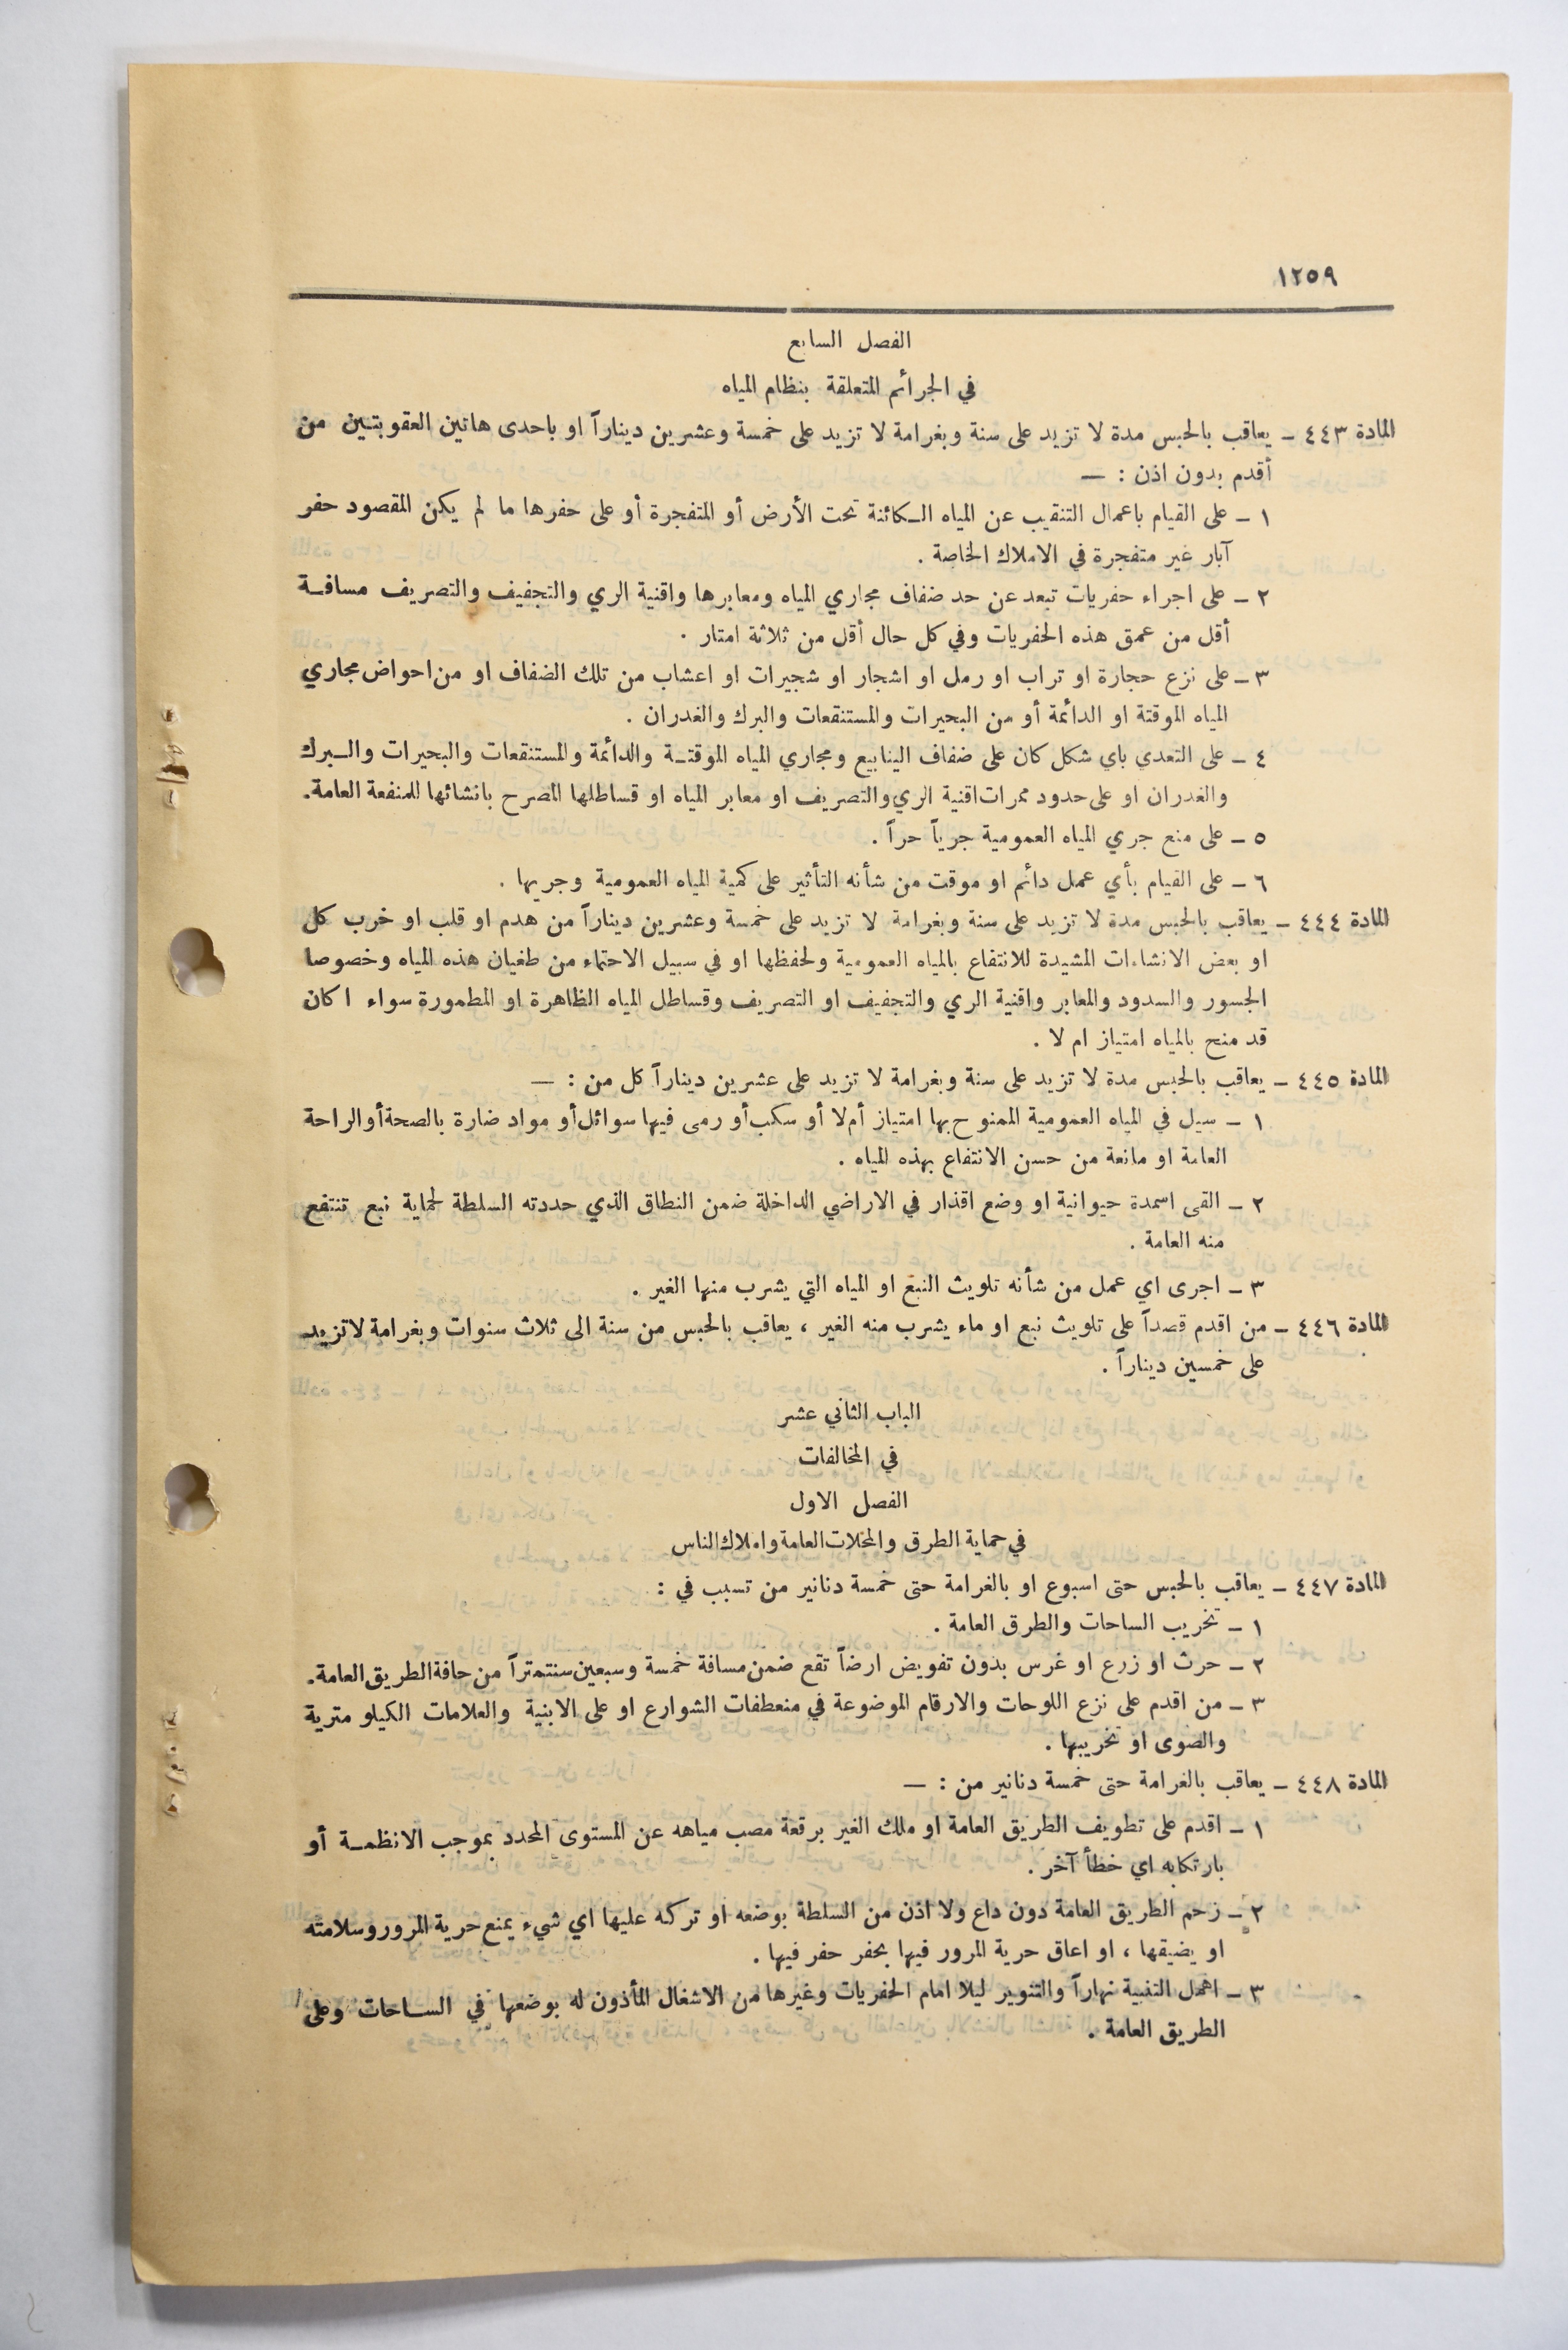 ١٢٥٩
الفصل السابع
في الجرائم المتعلقة بنظام المياه
المادة ٤٤٣ – يعاقب بالحبس مدة لا تزيد على سنة وبغرامة لا تزيد على خمسة وعشرين ديناراً او باحدى هاتين العقوبتين من
أقدم بدون اذن : —
١ – على القيام باعمال التنقيب عن المياه الكائنة تحت الأرض أو المتفجرة أو على حفرها ما لم يكن المقصود حفر
آبار غير متفجرة في الاملاك الخاصة .
٢ – على اجراء حفريات تبعد عن حد ضفاف مجاري المياه ومعابرها واقنية الري والتجفيف والتصريف مسافة
أقل من عمق هذه الحفريات وفي كل حال أقل من ثلاثة امتار .
٣ – على نزع حجارة او تراب او رمل او اشجار او شجيرات او اعشاب من تلك الضفاف او من احواض مجاري
المياه الموقتة او الدائمة أو من البحيرات والمستنقعات والبرك والغدران .
٤ – على التعدي باي شكل كان على ضفاف الينابيع ومجاري المياه الموقتة والدائمة والمستنقعات والبحيرات والبرك
والغدران او على حدود ممرات اقنية الري والتصريف او معابر المياه او قساطلها المصرح بانشائها للمنفعة العامة.
٥ – على منع جري المياه العمومية جرياً حراً .
٦ – على القيام بأي عمل دائم او موقت من شأنه التأثير على كمية المياه العمومية وجريها .
المادة ٤٤٤ – يعاقب بالحبس مدة لا تزيد على سنة وبغرامة لا تزيد على خمسة وعشرين ديناراً من هدم او قلب او خرب كل
او بعض الانشاءات المشيدة للانتفاع بالمياه العمومية ولحفظها او في سبيل الاحتماء من طغيان هذه المياه وخصوصا
الجسور والسدود والمعابر واقنية الري والتجفيف او التصريف وقساطل المياه الظاهرة او المطمورة سواء اكان
قد منح بالمياه امتياز ام لا .
المادة ٤٤٥ – يعاقب بالحبس مدة لا تزيد على سنة وبغرامة لا تزيد على عشرين ديناراً كل من : —
١ – سيل في المياه العمومية الممنوح بها امتياز أم لا أو سكب أو رمى فيها سوائل أو مواد ضارة بالصحة أو الراحة
العامة او مانعة من حسن الانتفاع بهذه المياه .
٢ – القى اسمدة حيوانية او وضع اقذار في الاراضي الداخلة ضمن النطاق الذي حددته السلطة لحماية نبع تنتفع
منه العامة .
٣ – اجرى اي عمل من شأنه تلويث النبع او المياه التي يشرب منها الغير .
المادة ٤٤٦ – من اقدم قصداً على تلويث نبع او ماء يشرب منه الغير ، يعاقب بالحبس من سنة الى ثلاث سنوات وبغرامة لا تزيد
على خمسين ديناراً .
الباب الثاني عشر
في المخالفات
الفصل الاول
في حماية الطرق والمحلات العامة واملاك الناس
المادة ٤٤٧ – يعاقب بالحبس حتى اسبوع او بالغرامة حتى خمسة دنانير من تسبب في :
١ – تخريب الساحات والطرق العامة .
٢ – حرث او زرع او غرس بدون تفويض ارضاً تقع ضمن مسافة خمسة وسبعين سنتمتراً من حافة الطريق العامة.
٣ – من اقدم على نزع اللوحات والارقام الموضوعة في منعطفات الشوارع او على الابنية والعلامات الكيلو مترية
والصوى او تخريبها .
المادة ٤٤٨ – يعاقب بالغرامة حتى خمسة دنانير من : —
١ – اقدم على تطويف الطريق العامة او ملك الغير برقعة مصب مياهه عن المستوى المحدد بموجب الانظمة أو
بارتكابه اي خطأ آخر .
٢ – زحم الطريق العامة دون داع ولا اذن من السلطة بوضعه او تركه عليها اي شيء يمنع حرية المرور وسلامته
او يضيقها ، او اعاق حرية المرور فيها بحفر حفر فيها .
٣ – اهمل التنبية نهاراً والتنوير ليلا امام الحفريات وغيرها من الاشغال المأذون له بوضعها في الساحات وعلى
الطريق العامة .